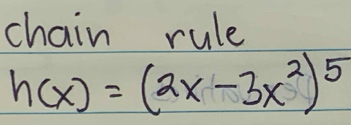 chain rule
h(x) = (2x-3x²)⁵